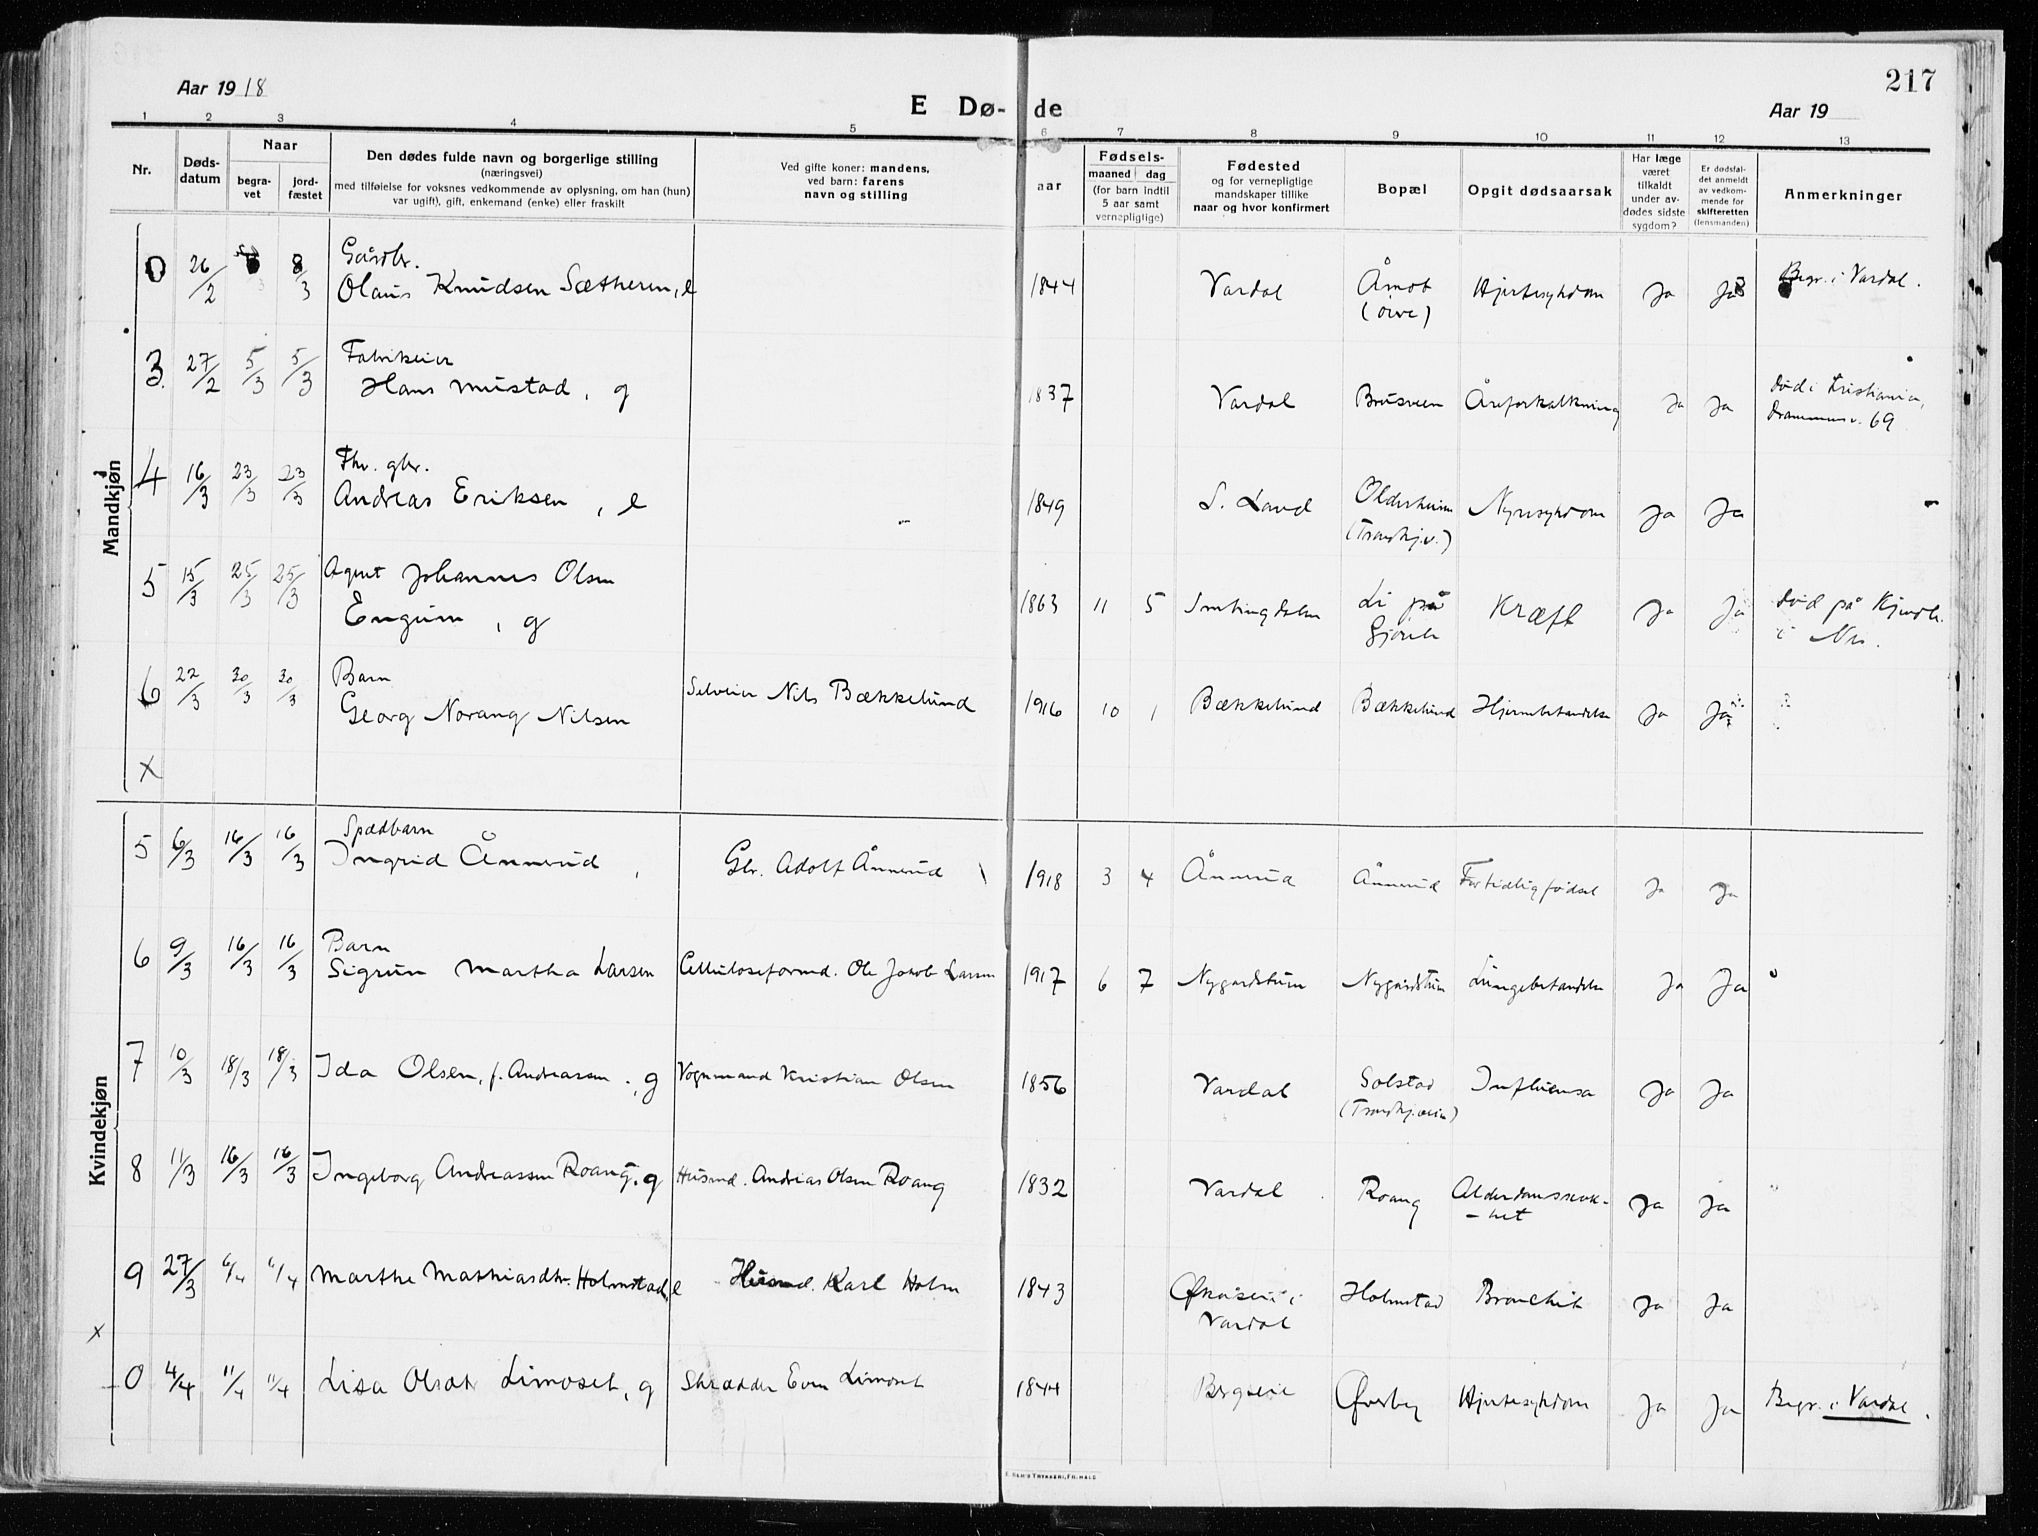 Aar 1918
217
E Dø- de
Aar 19
1 2 3 4 5 6 7 8 9 10 11 12 13
Nr.
Døds-
datum
Naar
begra-
vet
jord-
fæstet
Den dødes fulde navn og borgerlige stilling
(næringsvei)
med tilføielse for voksnes vedkommende av oplysning, om han (hun)
var ugift), gift, enkemand (enke) eller fraskilt
Ved gifte koner: mandens,
ved barn: farens
navn og stilling
aar
Fødsels-
maaned dag
(for barn indtil
5 aar samt
vernepligtige)
Fødested
og for vernepligtige
mandskaper tillike
naar og hvor konfirmert
Bopæl
Opgit dødsaarsak
Har læge
været
tilkaldt
under av-
dødes sidste
sygdom?
Er dødsfal-
det anmeldt
av vedkom-
mende for
skifteretten
(lensmanden)
Anmerkninger
Mandkjøn
0 26/2 8/3 Gårdbr.
Olaus Knudsen Sætheren, e 1844 Vardal Åmot Hjertesykdom Ja Ja Begr. i Vardal.
3. 27/2 5/3 5/3 Fabrikeier
Hans Mustad, g 1837 Vardal Brusveen Åreforkalkning Ja Ja Död i Kristiania,
Drammensv. 69
4 16/3 23/3 23/3 Fhv. gbr.
Andreas Eriksen, e 1849 S. Land Olderheim Nyresykdom Ja Ja
(Trondhj.v.)
5 15/3 25/3 25/3 Agent Johannes Olsen
Engum, g 1863 11 5 Li på Gjövik Kræft Ja Ja Död på
6 22/3 30/3 30/3 Barn
Georg Norang Nilsen Selveier Nils Bækkelund 1916 10 1 Bækkelund Bækkelund Hjernebetændelse Ja Ja
x
Kvindekjøn
5 6/3 16/3 16/3 Spædbarn
Ingrid Ånnerud, Gbr. Adolf Ånnerud 1918 3 4 Ånnerud Ånnerud For tidlig födsel Ja Ja
6 9/3 16/3 16/3 Barn
Sigrun Martha Larsen Celluloseformd. Ole Jakob Larsen 1917 6 7 Nygardstum Nygårdstum Lungebetændelse Ja Ja
7 10/3 18/3 18/3 Ida Olsen, f. Andreassen, g Vognmand Kristian Olsen 1856 Vardal Solstad Influensa Ja Ja
(Trondhj.veien)
8 11/3 16/3 16/3 Ingeborg Andreassen Roang, g Husmd. Andreas Olsen Roang 1832 Vardal Roang Alderdomssvak-
-het Ja Ja
9 27/3 6/4 6/4 Marthe Mathiasdtr. Holmstad, e Husmd. Karl Holm 1843 Vardal Holmstad Bronchit Ja Ja
x
0 4/4 11/4 11/4 Lisa Olsdtr Limoset, g Skrædder Even Limoset 1844 Bergseie Øverby Hjertesykdom Ja Ja Begr. i Vardal.